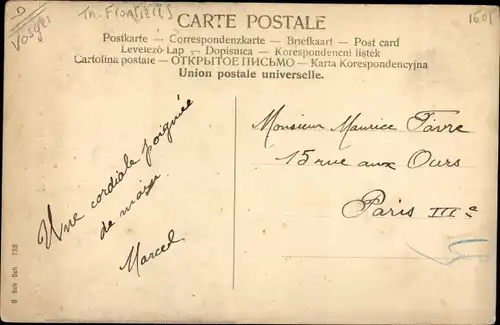 D
Vosges
Th. Frontières
1601
CARTE POSTALE
Postkarte — Correspondenzkarte — Briefkaart — Post card
Levelező-Lap — Dopisnica — Korespondencni listek
Cartolina postale — ОТКРЫТОЕ ПИСЬМО — Karta Korespondencyjna
Union postale universelle.
Une cordiale poignée
de main
Marcel
Monsieur Maurice Favre
15 rue aux Ours
Paris IIIe
G Sch Sch. 738